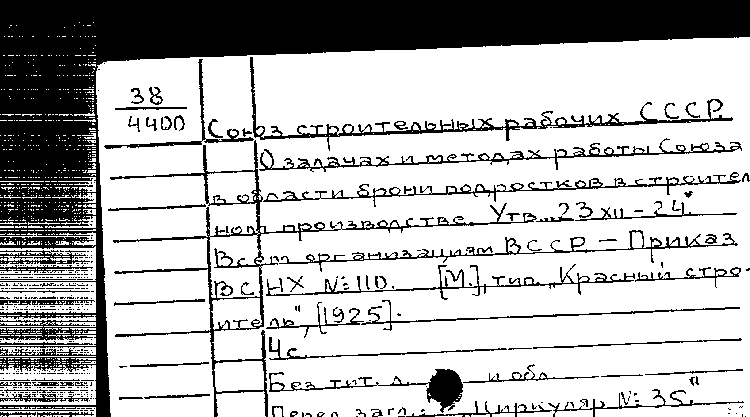 38
4400
Союз строительных рабочих СССР.
О задачах и методах работы Союза
в области брони подростков в строител
ном производстве. Утв. 23 XII - 24.
Всем организациям ВССР - Приказ
ВСНХ №110. [М.], тип. „Красный стро-
итель", [1925].
4с.
Без тит. л. и обл
Перед загл.: Циркуляр № 35"